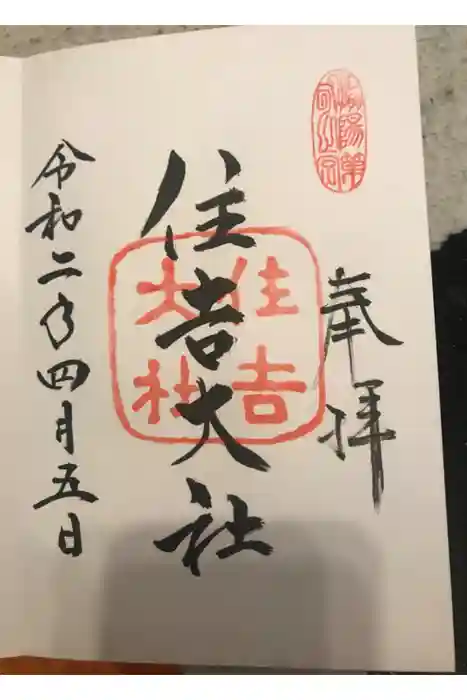 奉拝
住吉大社
住吉
大社
令和二年四月五日